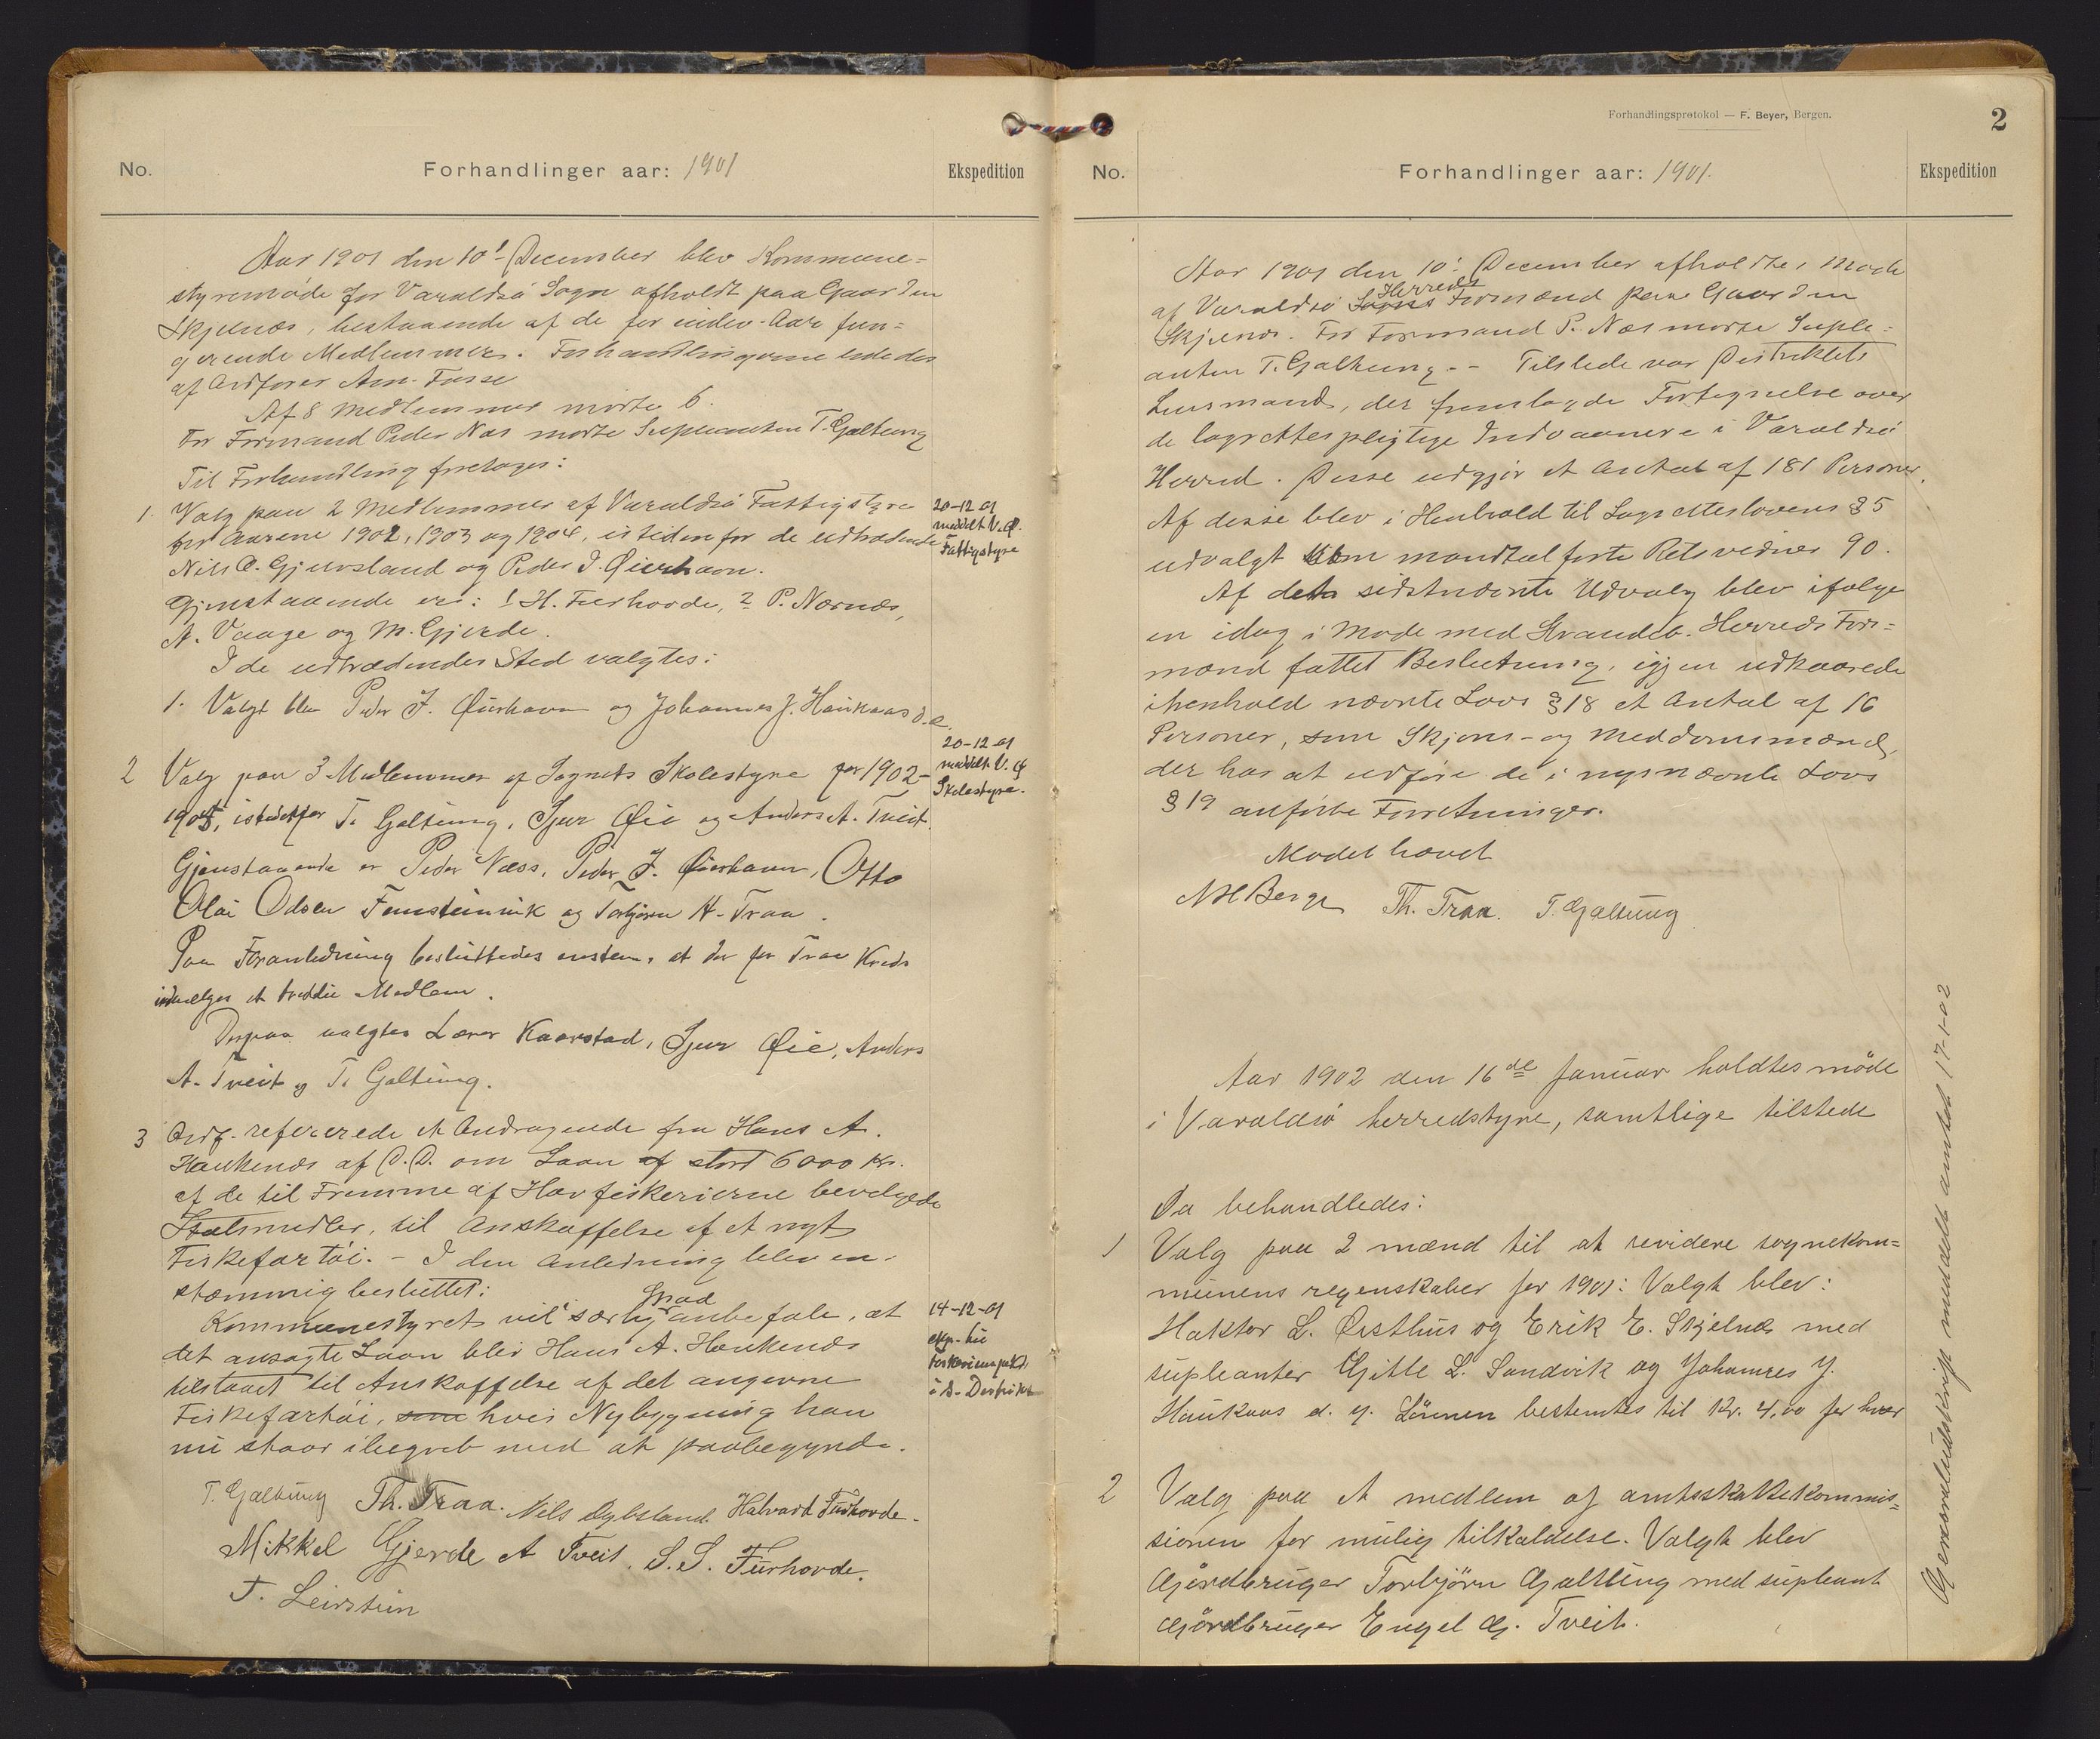 No.
Forhandlinger aar: 1901
Ekspedition
Aar 1901 den 10! December blev Kommune=
styremøde for Varaldsø Sogn afholdt paa Gaarden
Skjelnæs, bestaaende af de for indev. Aar fun=
gerende Medlemmer. Forhandlingerne lededes
af Ordfører Arn. Fosse
Af 8 Medlemmer mødte 6.
For Formand Peder Næs mødte Supleanten T. Galtung
Til Forhandling foretoges:
1. Valg paa 2 Medlemmer af Varaldsø Fattigstyre
for Aarene 1902, 1903 og 1904, istedenfor de udtrædende
Nils O. Gjuvsland og Peder J. Øierhavn.
Gjenstaaende er: 1 H. Furhovde, 2 P. Nærnæs,
A. Vaage og M. Gjerde.
I de udtrædendes Sted valgtes:
1. Valgt blev Peder J. Øierhavn og Johannes J. Haukaas d.e.
20-12-01
meddelt V. Ø.
Fattigstyre
2 Valg paa 3 Medlemmer af Sognets Skolestyre for 1902-
1904, istedetfor T. Galtung, Sjur Øie og Anders A. Tveit.
Gjenstaaende er Peder Næss, Peder J. Øierhavn, Otto
Olai Odsen Fensteinvik og Torbjørn H. Traa.
Paa Foranledning besluttedes enstem. at der for Traa Kreds
indvælges et treddie Medlem.
Derpaa valgtes Lærer Kaarstad, Sjur Øie, Anders
A. Tveit og T. Galtung.
20-12-01
meddelt V. Ø
Skolestyre.
3 Ordf. refererede et Andragende fra Hans A.
Haukenæs af C.D. om Laan af stort 6000 Kr.
af de til Fremme af Havfiskerierne bevilgede
Statsmidler, til Anskaffelse af et nyt
Fiskefartøi. - I den Anledning blev en-
stemmig besluttet:
Kommunestyret vil i særlig Grad anbefale, at
det ansøgte Laan blir Hans A. Haukenæs
tilstaaet til Anskaffelse af det angivne
Fiskefartøi, som hvis Nybygning han
nu staar ibegreb med at paabegynde.
14-12-01
exp. tie
i S. Distrikt
T. Galtung Th. Traa. Nils Gybsland Halvard Furhovde.
Mikkel Gjerde A Tveit. S. S. Furhovde.
T. Leirstein
Forhandlingsprotokol — F. Beyer, Bergen.
2
No.
Forhandlinger aar: 1901.
Ekspedition
Aar 1901 den 10! December afholdtes Møde
af Varaldsø Sogns Herreds Formænd paa Gaarden
Skjelnæs. For Formand P. Næs mødte Suple=
anten T. Galtung. -- Tilstede var Distriktets
Lensmand, der fremlagde Fortegnelse over
de lagrettespligtige Indvaanere i Varaldsø
Herred. Disse udgjør et Antal af 181 Personer.
Af disse blev i Henhold til Lagrettelovens § 5
udvalgt som mandtalførte Retsvidner 90.
Af dette sidstnævnte Udvalg blev ifølge
en idag i Møde med Strandeb. Herreds For=
mænd fattet Beslutning, igjen udkaarede
ihenhold nævnte Lovs § 18 et Antal af 16
Personer, som Skjøns- og Meddomsmænd,
der har at udføre de i nysnævnte Lovs
§ 19 anførte Forretninger.
Mødet hævet
N H Berge Th. Traa. T. Galtung
Aar 1902 den 16de Januar holdtes møde
i Varaldsø herredstyre, samtlige tilstede
Da behandledes:
1 Valg paa 2 mænd til at revidere sognekom=
munens regnskaber for 1901: Valgt blev:
Haktor L. Østhus og Erik E. Skjelnæs med
supleanter Gitle L. Sandvik og Johannes J.
Haukaas d. y. Lønnen bestemtes til Kr. 4,00 for hver
2 Valg paa et medlem af amtsskattekommis=
sionen for mulig tilkaldelse. Valgt blev
Gårdbruger Torbjørn Galtung med supleant
Gårdbruger Engel G. Tveit.
Gjenpartudskrift meddelt amtet 17-1-02